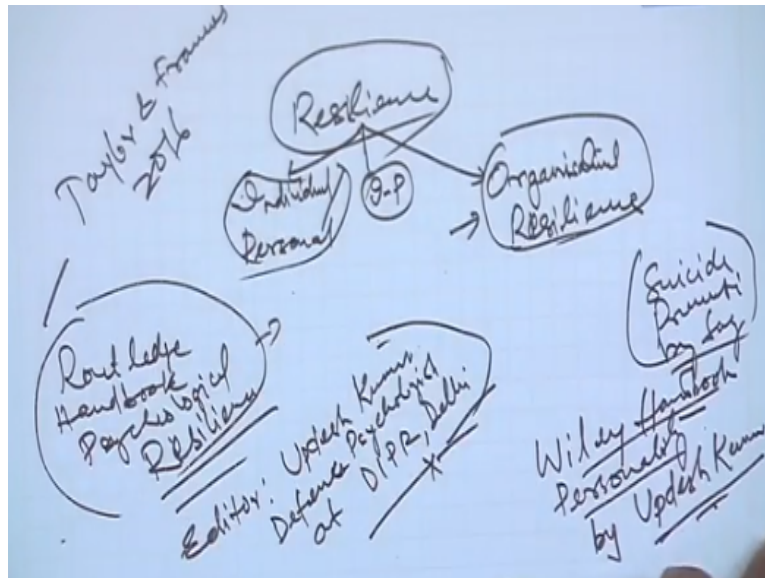 Taylor & Frances
2016
Resilience
Individual
Personal
I-P
Organisational
Resilience
Routledge
Handbook
Psychological
Resilience
Editor: Updesh Kumar
Defence Psychologist
at DIPR, Delhi
Suicide
by Sage
Wiley Handbook
Personality
by Updesh Kumar